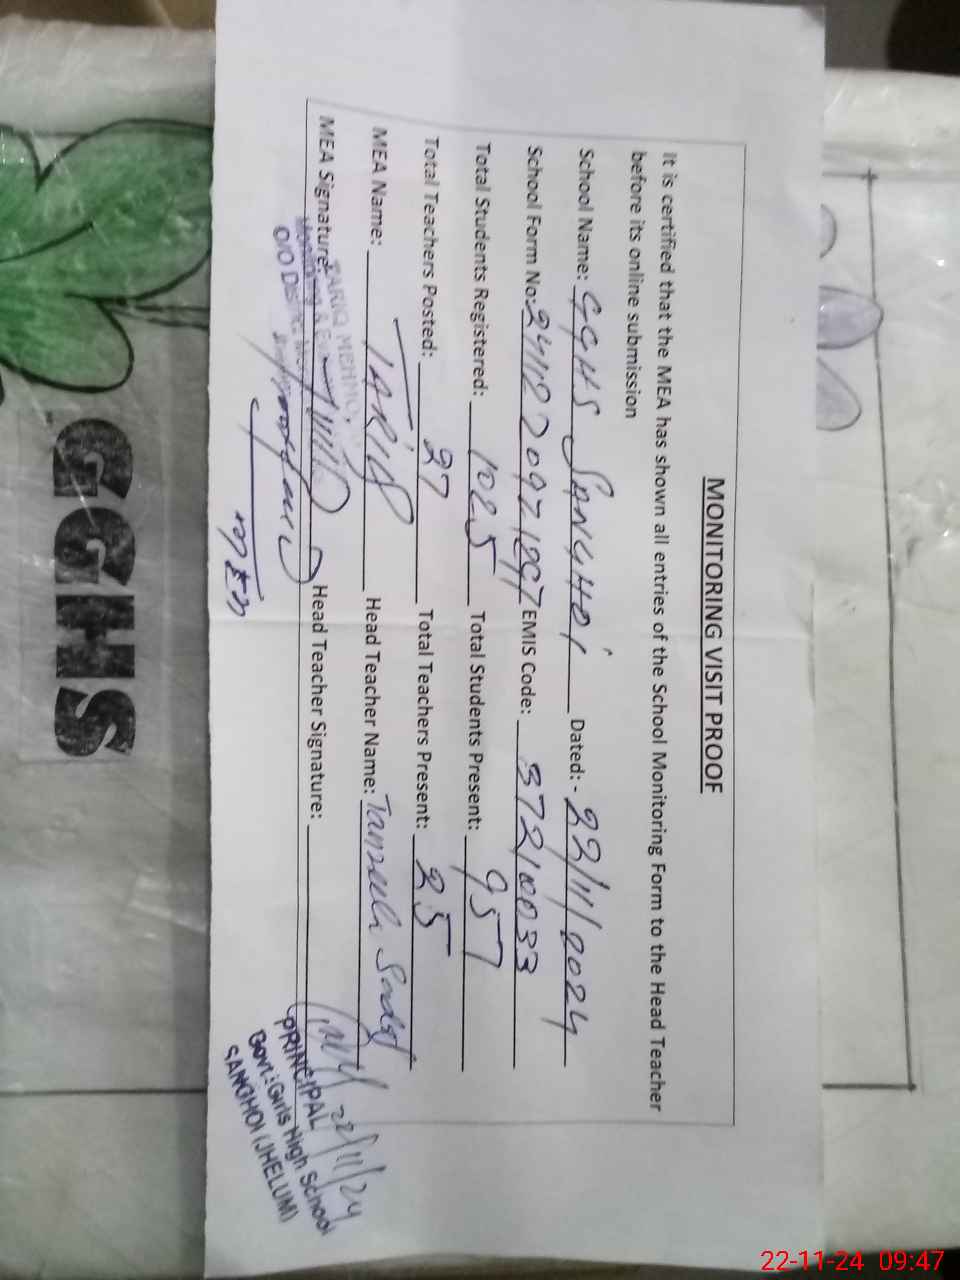 MONITORING VISIT PROOF
It is certified that the MEA has shown all entries of the School Monitoring Form to the Head Teacher
before its online submission
School Name: GGHS SANGHOI Dated: - 22/11/2024
School Form No: 24112209721897 EMIS Code: 37210033
Total Students Registered: 1025 Total Students Present: 957
Total Teachers Posted: 27 Total Teachers Present: 25
MEA Name: TARIQ Head Teacher Name: Tanzeela
MEA Signature: Head Teacher Signature:
TARIQ MEHMO
O/O Distt.
22/11/24
PRINCIPAL
Govt: Girls High School
SANGHOI (JHELUM)
GGHS
22-11-24 09:47